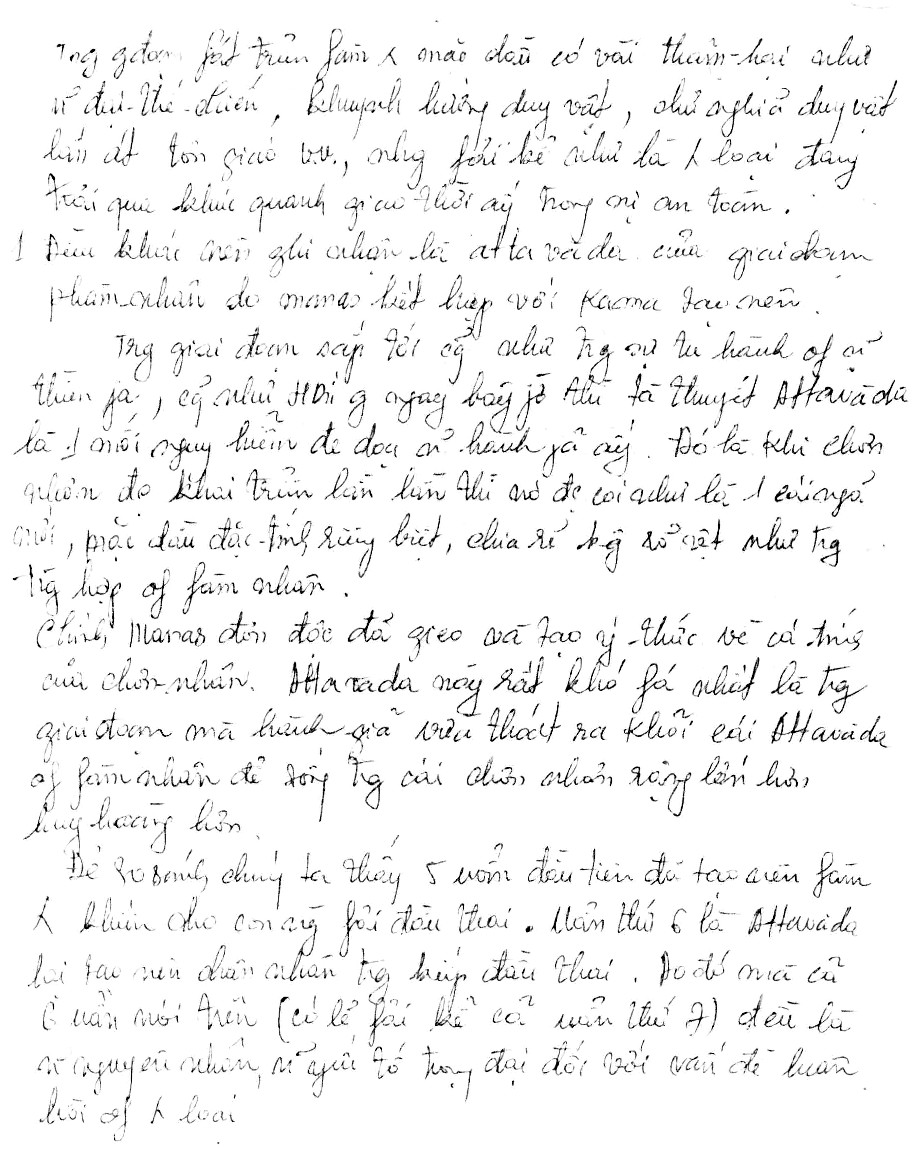 Trg gđoạn fát triển fàm λ mặc dầu có vài thảm-hại như
n~ đại-thế-chiến, khuynh hướng duy vật, chủ nghĩa duy vật
lấn át tôn giáo v.v., nhg fải kể như là λ loại đang
trải qua khúc quanh giao thời ấy trong sự an toàn.
1 Điều khác nên ghi nhận là attavada của giai đoạn
phàm-nhân do manas kết hiệp với Kama tạo nên.
Trg giai đoạn sắp tới cg~ như trg sự tu hành of n~
thiền ja, cg~ như ngay bây jờ thì tà thuyết Attavada
là 1 mối nguy hiểm đe dọa n~ hành jả ấy. Đó là khi chơn
nhơn đc khai triển lần lần thì nó đc coi như là 1 cái ngã
mới, mặc dầu đặc-tính riêng biệt, chia rẽ kg rõ rệt như trg
trg hợp of fàm nhân.
Chính Manas đơn độc đã gieo và tạo ý-thức về cá tính
của chơn nhân. Attavada này rất khó fá nhất là trg
giai đoạn mà hành-giả vừa thoát ra khỏi cái Attavada
of fàm nhân để sống trg cái chơn nhân rộng lớn hơn
huy hoàng hơn.
Để so sánh, chúng ta thấy 5 uẩn đầu-tiên đã tạo nên fàm
λ khiến cho con ng fải đầu thai. Uẩn thứ 6 là Attavada
lại tạo nên chân nhân trg kiếp đầu thai. Do đó mà cả
6 uẩn nói trên (có lẽ fải kể cả uẩn thứ 7) đều là
n~ nguyên nhân, n~ yếu tố trọng đại đối với vấn đề luân
hồi of λ loại